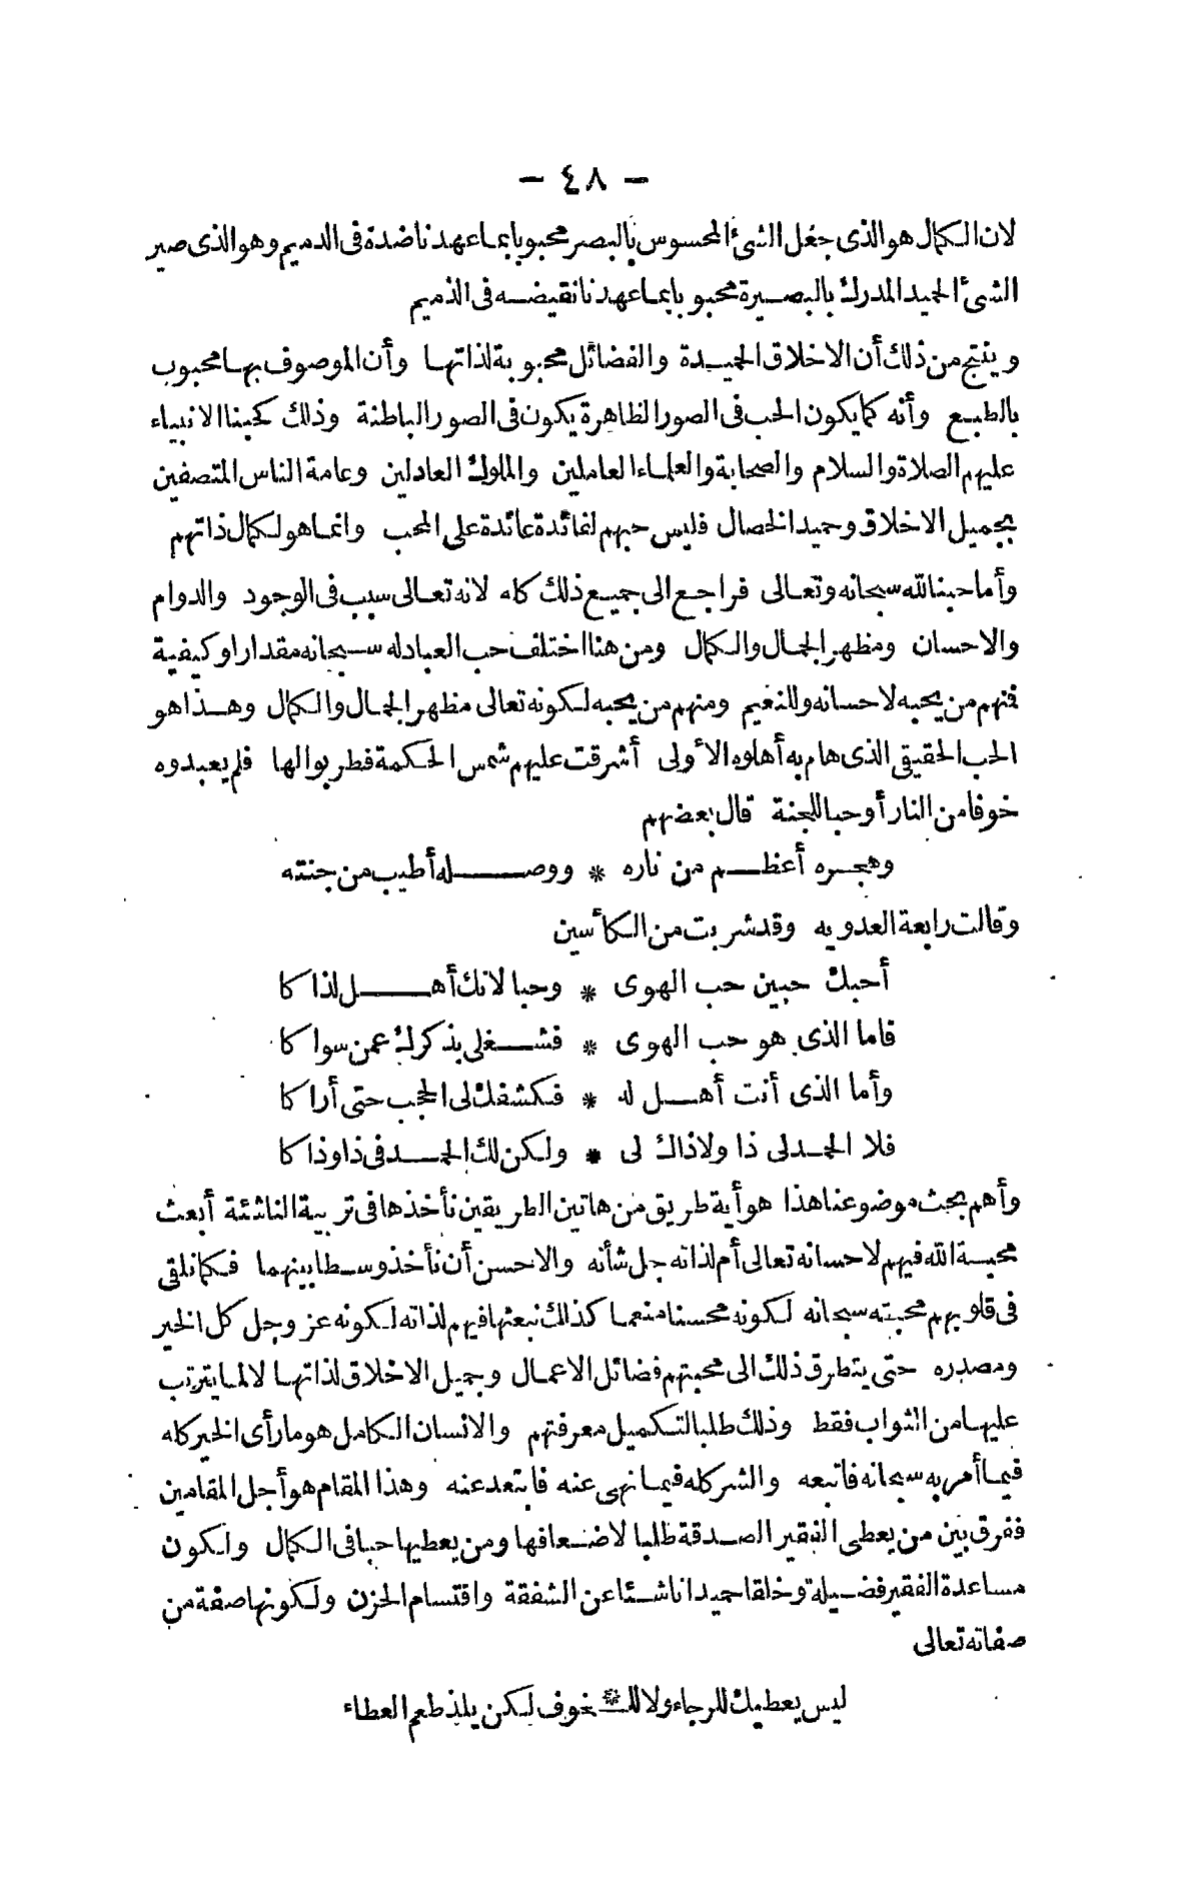 — ٤٨ —
لان الكمال هو الذى جعل الشئ المحسوس بالبصر محبوبا بما عهدنا ضده فى الدميم وهو الذى صير
الشئ الحميد المدرك بالبصيرة محبوبا بما عهدنا نقيضه فى الذميم
وينتج من ذلك أن الاخلاق الحميدة والفضائل محبوبة لذاتها وأن الموصوف بها محبوب
بالطبع وأنه كما يكون الحب فى الصور الظاهرة يكون فى الصور الباطنة وذلك كحبنا الانبياء
عليهم الصلاة والسلام والصحابة والعلماء العاملين والملوك العادلين وعامة الناس المتصفين
بجميل الاخلاق وحميد الخصال فليس حبهم لفائدة عائدة على المحب وانما هو لكمال ذاتهم
وأما حبنا لله سبحانه وتعالى فراجع الى جميع ذلك كله لانه تعالى سبب فى الوجود والدوام
والاحسان ومظهر الجمال والكمال ومن هنا اختلف حب العباد له سبحانه مقدارا وكيفية
فمنهم من يحبه لاحسانه وللنعيم ومنهم من يحبه لكونه تعالى مظهر الجمال والكمال وهذا هو
الحب الحقيقى الذى هام به أهلوه الأولى أشرقت عليهم شمس الحكمة فطربوا لها فلم يعبدوه
خوفا من النار أو حبا للجنة قال بعضهم
وهجره أعظم من ناره * ووصله أطيب من جنته
وقالت رابعة العدويه وقد شربت من الكأسين
أحبك حبين حب الهوى * وحبا لانك أهل لذاكا
فاما الذى هو حب الهوى * فشغلى بذكرك عمن سواكا
وأما الذى أنت أهل له * فكشفك لى الحجب حتى أراكا
فلا الحمد لى ذا ولا ذاك لى * ولكن لك الحمد فى ذا وذاكا
وأهم بحث موضوعنا هذا هو أية طريق من هاتين الطريقين نأخذها فى تربية الناشئة أبعث
محبة الله فيهم لاحسانه تعالى أم لذاته جل شأنه والاحسن أن نأخذ وسطا بينهما فكما نلقى
فى قلوبهم محبته سبحانه لكونه محسنا منعما كذلك نبعثها فيهم لذاته لكونه عز وجل كل الخير
ومصدره حتى يتطرق ذلك الى محبتهم فضائل الاعمال وجميل الاخلاق لذاتها لا لما يترتب
عليها من الثواب فقط وذلك طلبا لتكميل معرفتهم والانسان الكامل هو ما رأى الخير كله
فيما أمر به سبحانه فاتبعه والشر كله فيما نهى عنه فابتعد عنه وهذا المقام هو أجل المقامين
ففرق بين من يعطى الفقير الصدقة طلبا لاضعافها ومن يعطيها حبا فى الكمال ولكون
مساعدة الفقير فضيلة وخلقا حميدا ناشئا عن الشفقة واقتسام الحزن ولكونها صفة من
صفاته تعالى
ليس يعطيك للرجاء ولا للـ * ـخوف لكن يلذ طعم العطاء